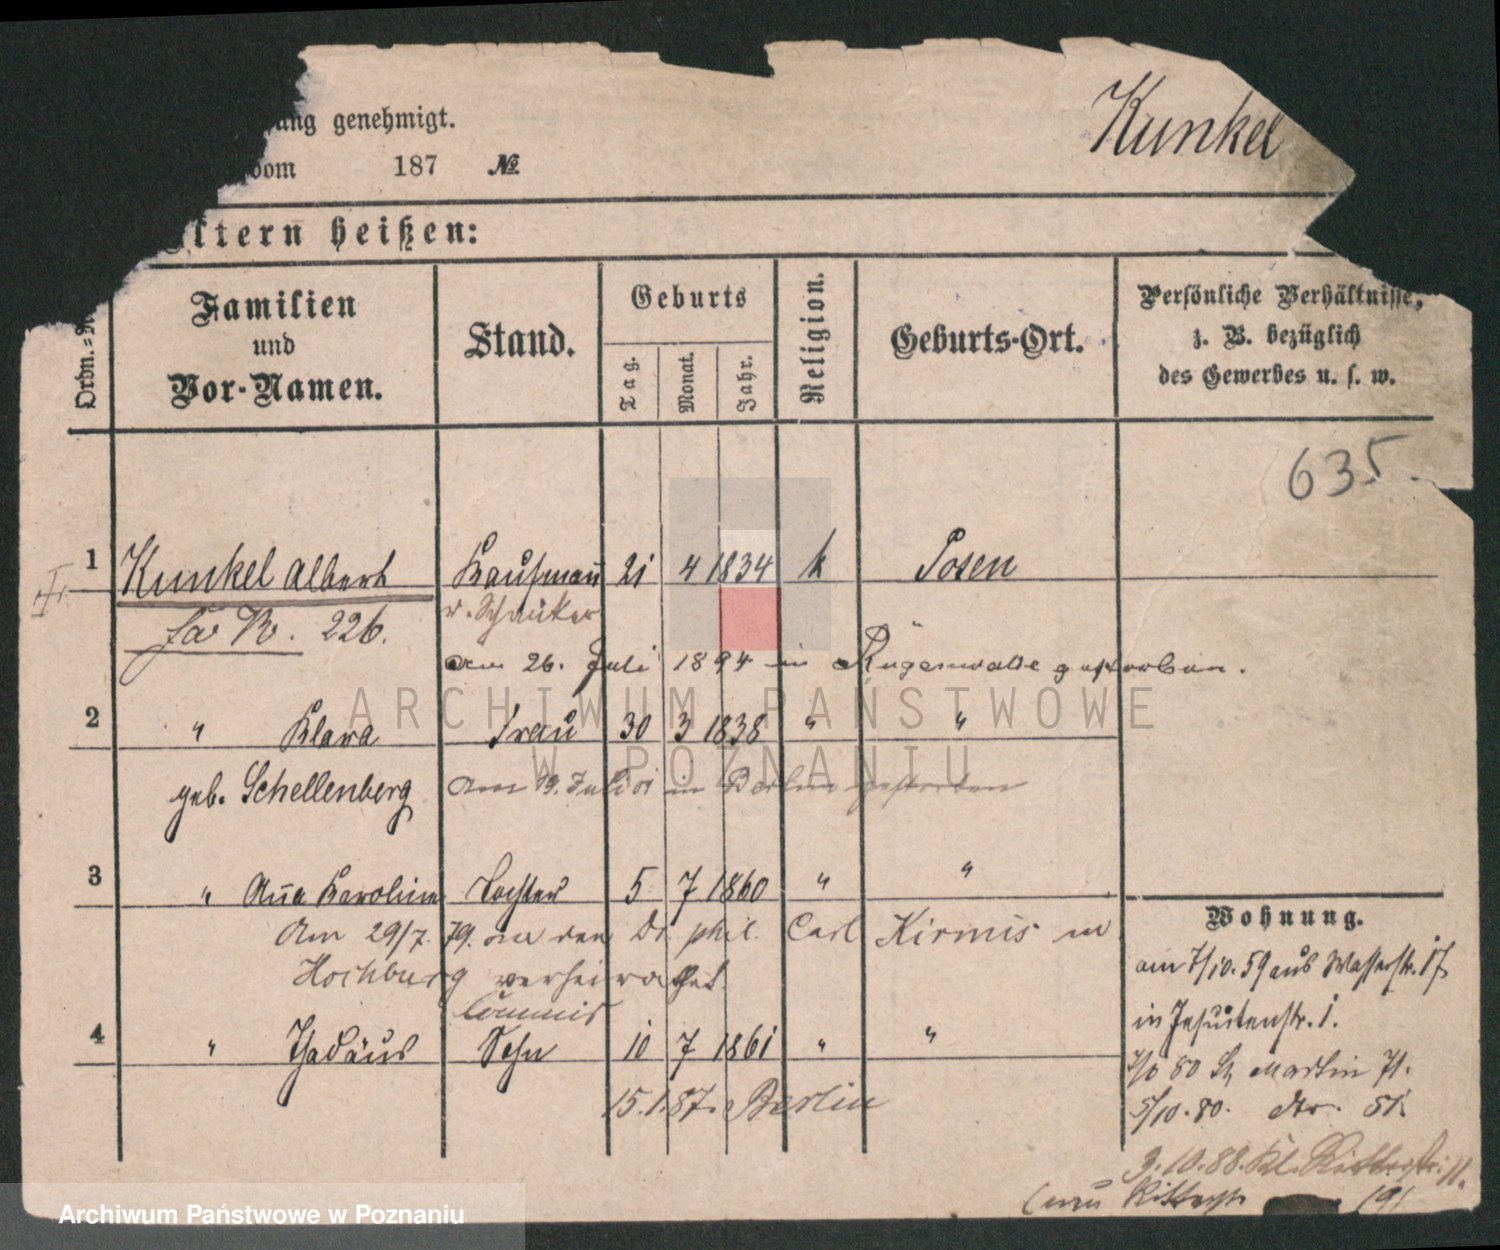 ung genehmigt.
Kunkel
vom 187 №
ltern heißen:
Ordn.=
Familien
und
Vor-Namen.
Stand.
Geburts
Tag.
Monat.
Jahr.
Religion.
Geburts-Ort.
Persönliche Verhältnisse,
z. B. bezüglich
des Gewerbes u. s. w.
635.
1 Kunkel Albert Kaufmann 21 4 1834 k Posen
226.
am 26. Juli 1894 in Rügenwalde gestorben.
2 " Klara Frau 30 3 1838 " "
geb. Schellenberg am 19. Juli 01 in Berlin gestorben
3 " Anna Karoline Tochter 5 7 1860 " "
Am 29/7. 79. an den Dr. phil. Carl Kirmis in
Hochburg verheirathet
Commis
4 " Thadäus Sohn 10 7 1861 " "
15.1.87. Berlin
Wohnung.
am 7/10. 59 aus Wasserstr. 17
in Jesuitenstr. 1.
80 St. Martin 71.
5/10. 80. dto. 51.
9.10.88. Kl. Ritterstr. 11.
(neu Ritterstr. 19)
ARCHIWUM PAŃSTWOWE
W POZNANIU
Archiwum Państwowe w Poznaniu